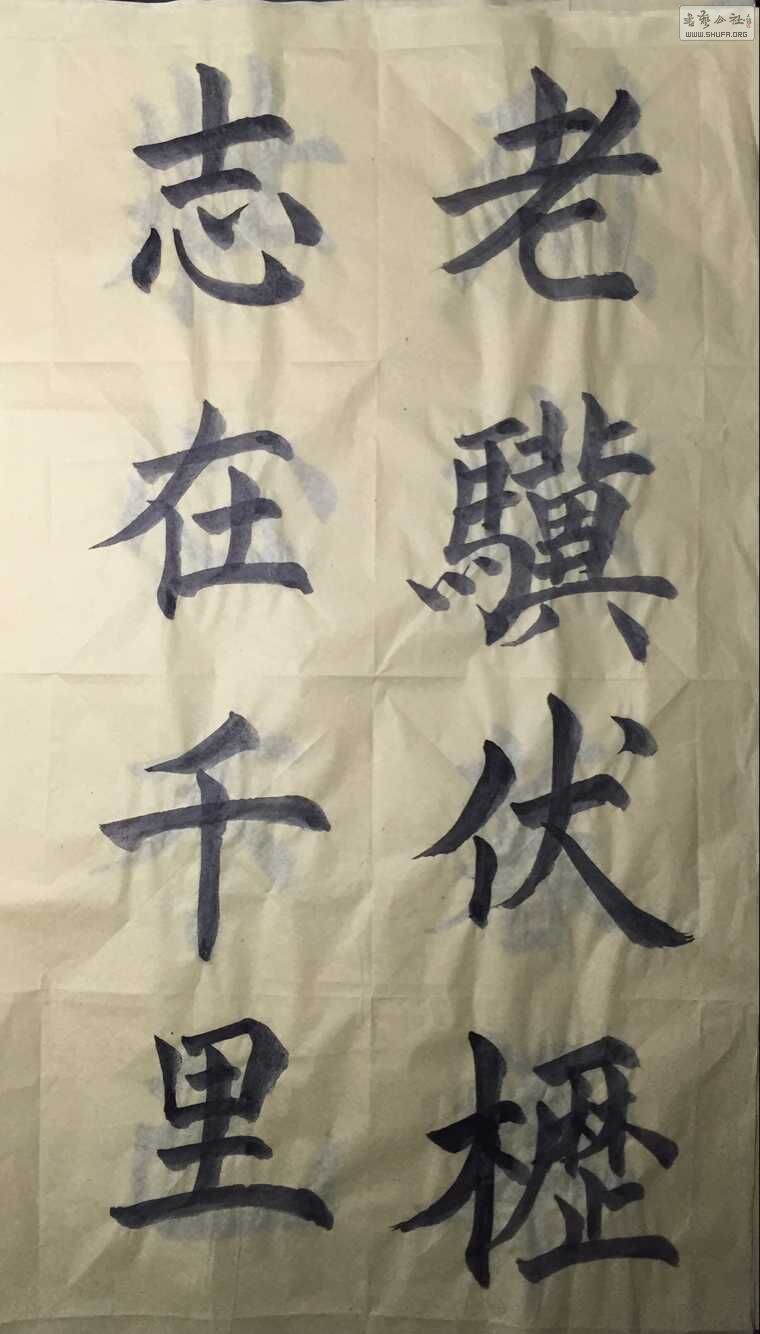 老驥伏櫪
志在千里
书艺公社
WWW.SHUFA.ORG